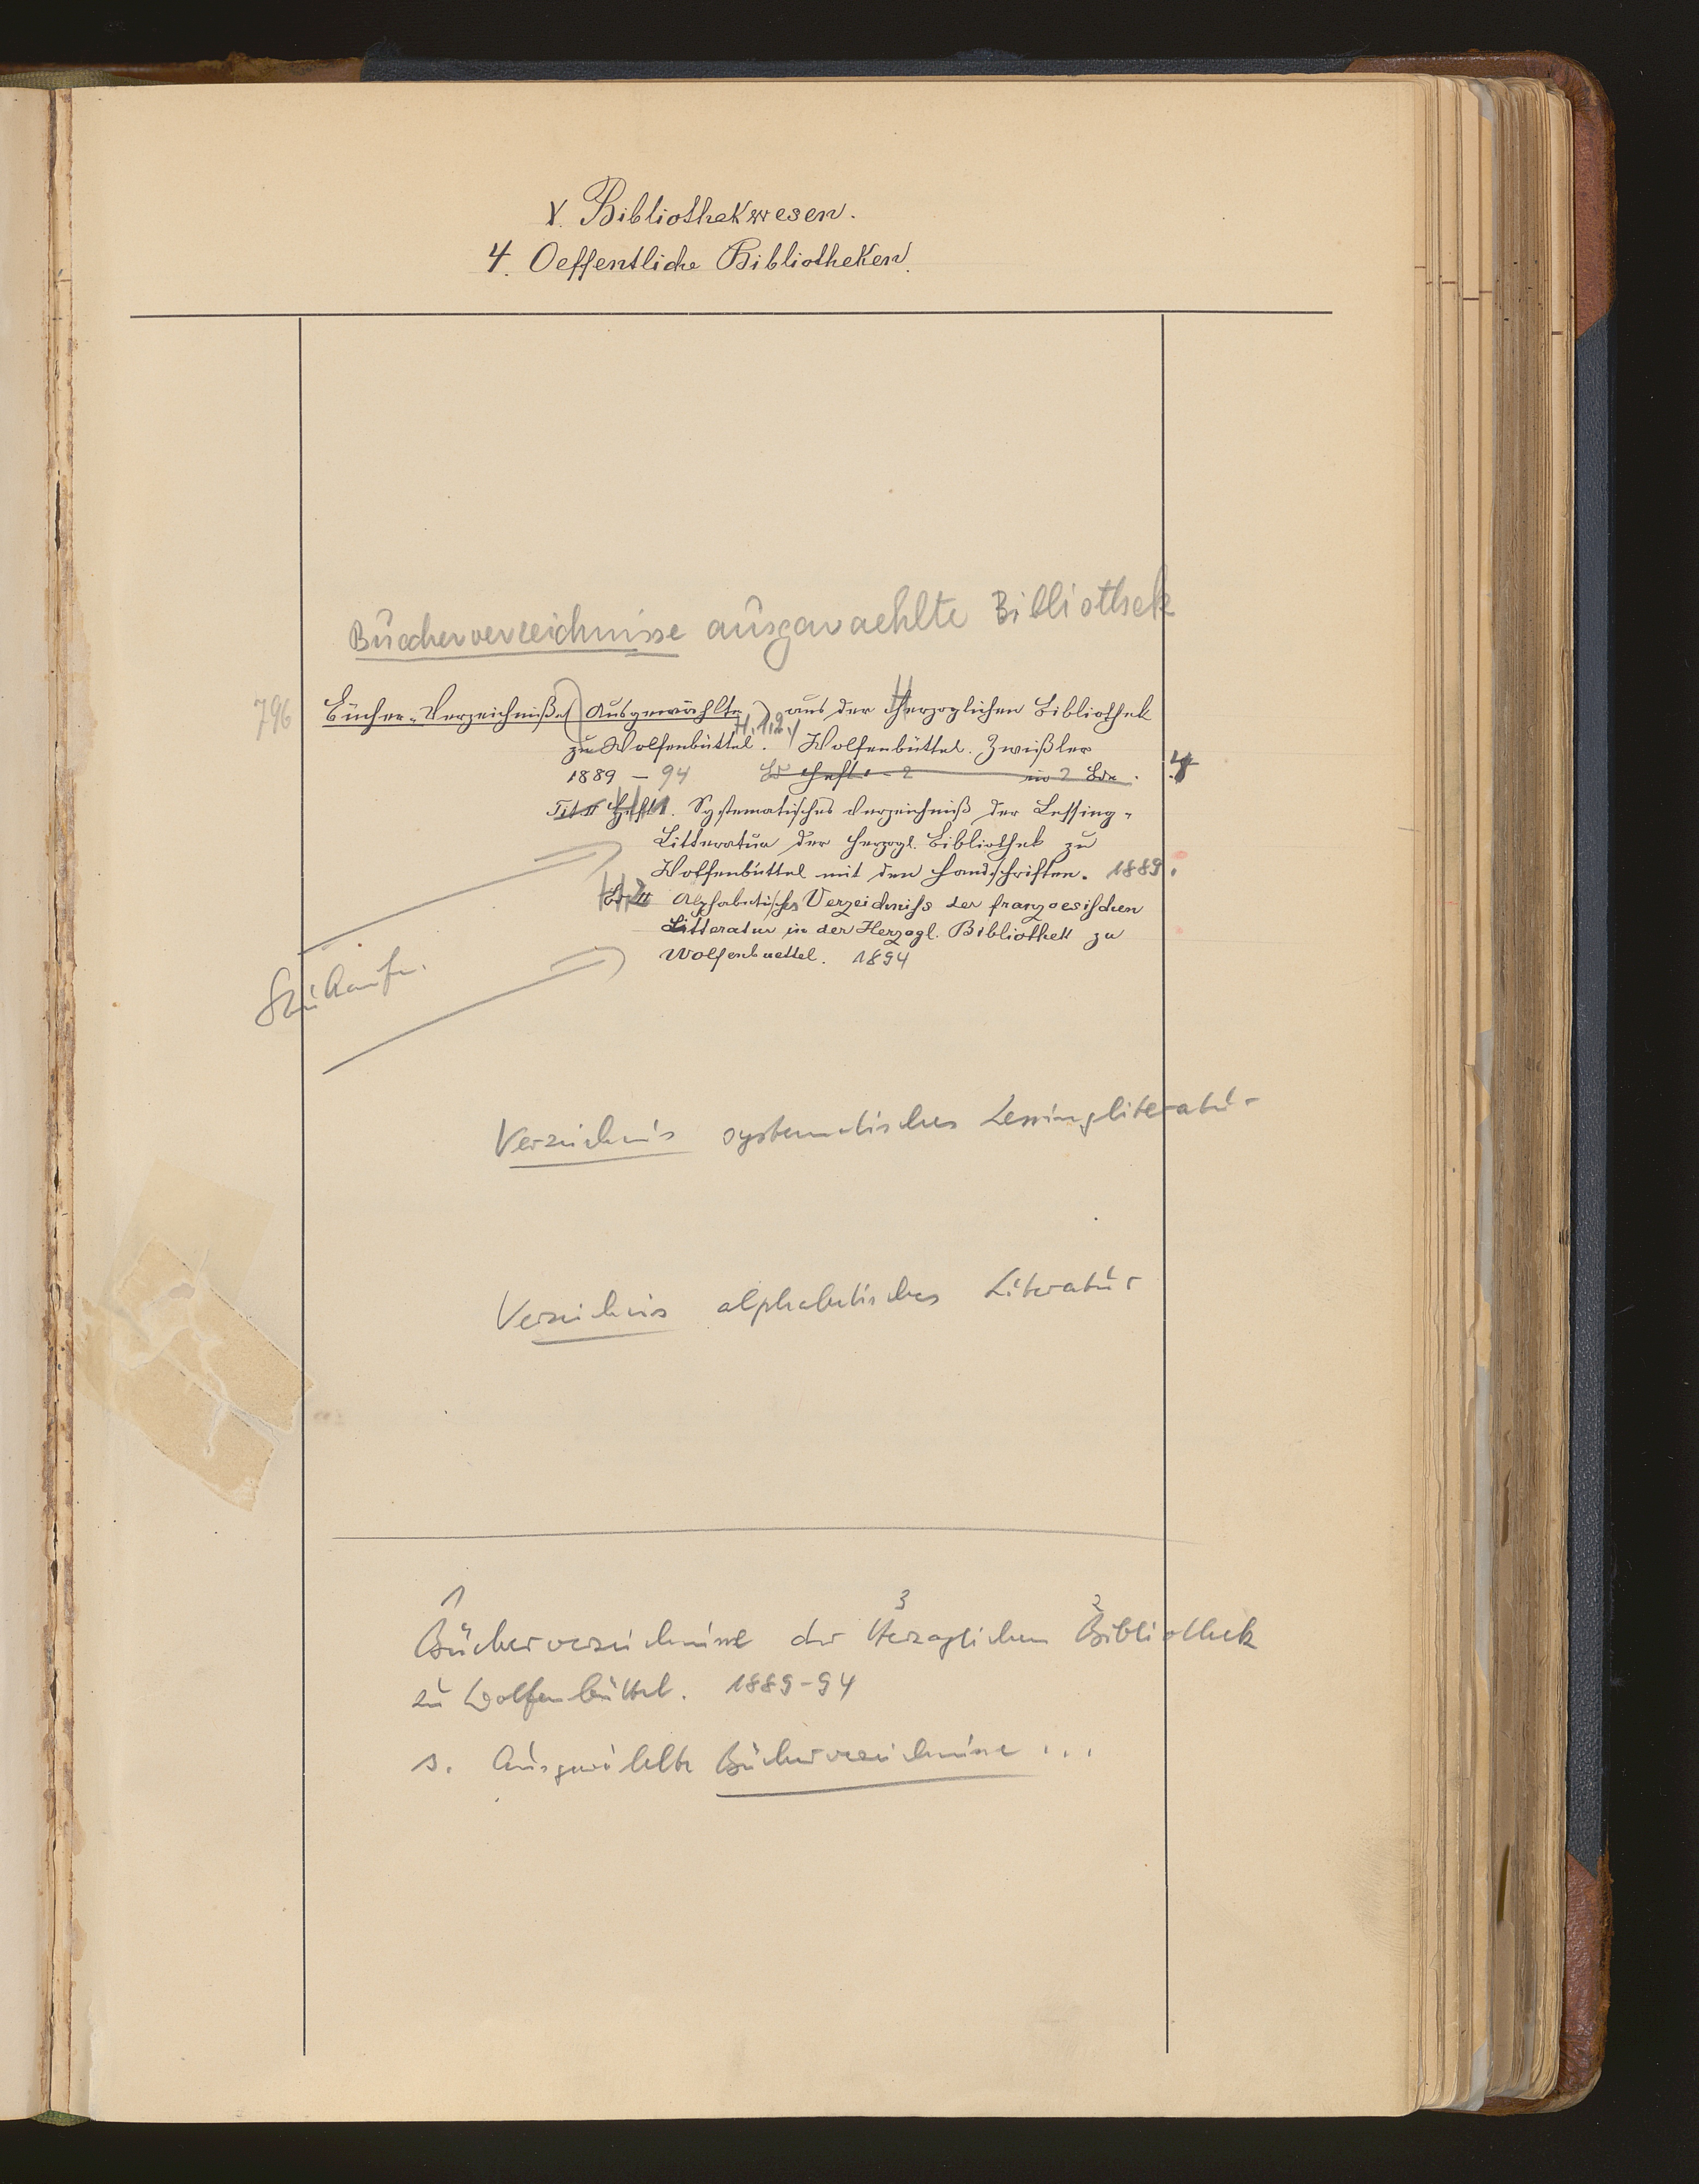 V. Bibliothekwesen.
4. Oeffentliche Bibliotheken.
Bücherverzeichnisse ausgewaehlte Bibliothek
796 Bücher-Verzeichniße (Ausgewählte) aus der Herzoglichen Bibliothek
zu Wolfenbüttel. H. 1.2. Wolfenbüttel. Zwißler
1889 - 94 Bd Heft 1 - 2 in 2 Bde. 4
Heft 1. Systematisches Verzeichniß der Lessing-
Litteratur der Herzogl. Bibliothek zu
Wolfenbüttel mit den Handschriften. 1889.
H. 2 Alphabetisches Verzeichniss der franzoesischen
Litteratur in der Herzogl. Bibliothek zu
Wolfenbuettel. 1894
Verzeichnis systematisches Lessingliteratur
Verzeichnis alphabetisches Literatur
1 3 2
Bücherverzeichnisse der Herzoglichen Bibliothek
zu Wolfenbüttel. 1889-94
s. Ausgewählte Bücherverzeichnisse ...